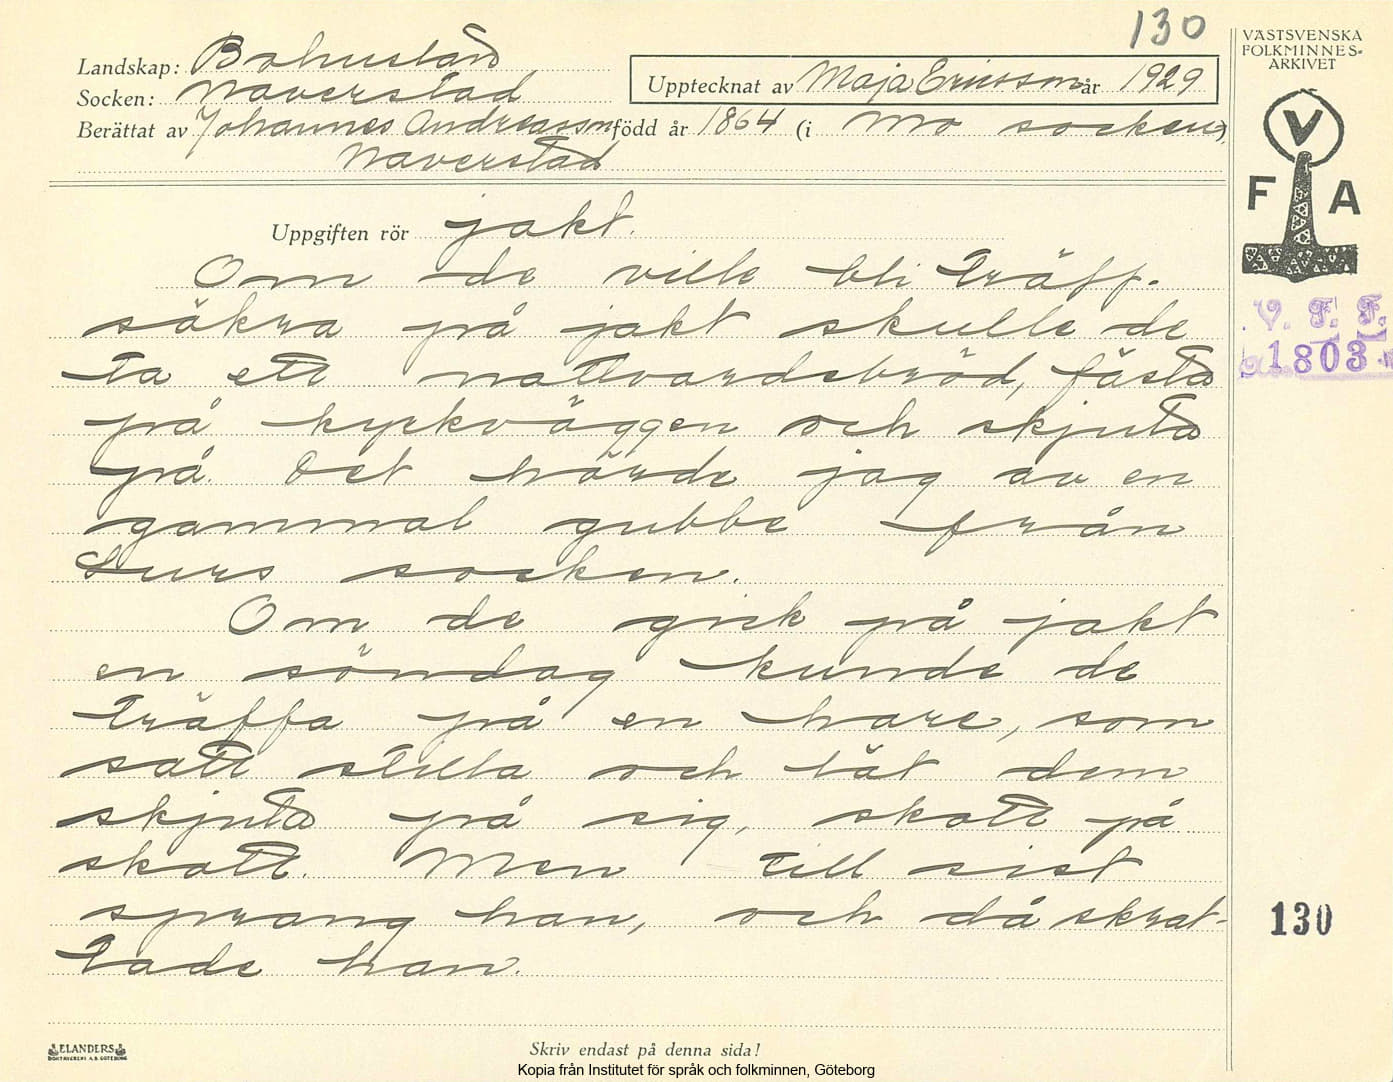 130
Landskap: Bohuslän
Socken: Naverstad
Upptecknat av Maja Ericsson år 1929
Berättat av Johannes Andreasson född år 1864 (i Mo socken),
Naverstad
VÄSTSVENSKA
FOLKMINNES-
ARKIVET
V
F A
V. F. F.
1803
Uppgiften rör jakt.
Om de ville bli träff-
säkra på jakt skulle de
ta ett nattvardsbröd, fästa
på kyrkväggen och skjuta
på. Det hörde jag av en
gammal gubbe från
Lurs socken.
Om de gick på jakt
en söndag kunde de
träffa på en hare, som
satt stilla och lät dem
skjuta på sig, skott på
skott. Men till sist
sprang han, och då skrat-
tade han.
130
ELANDERS
BOKTRYCKERI A.B. GÖTEBORG
Skriv endast på denna sida!
Kopia från Institutet för språk och folkminnen, Göteborg